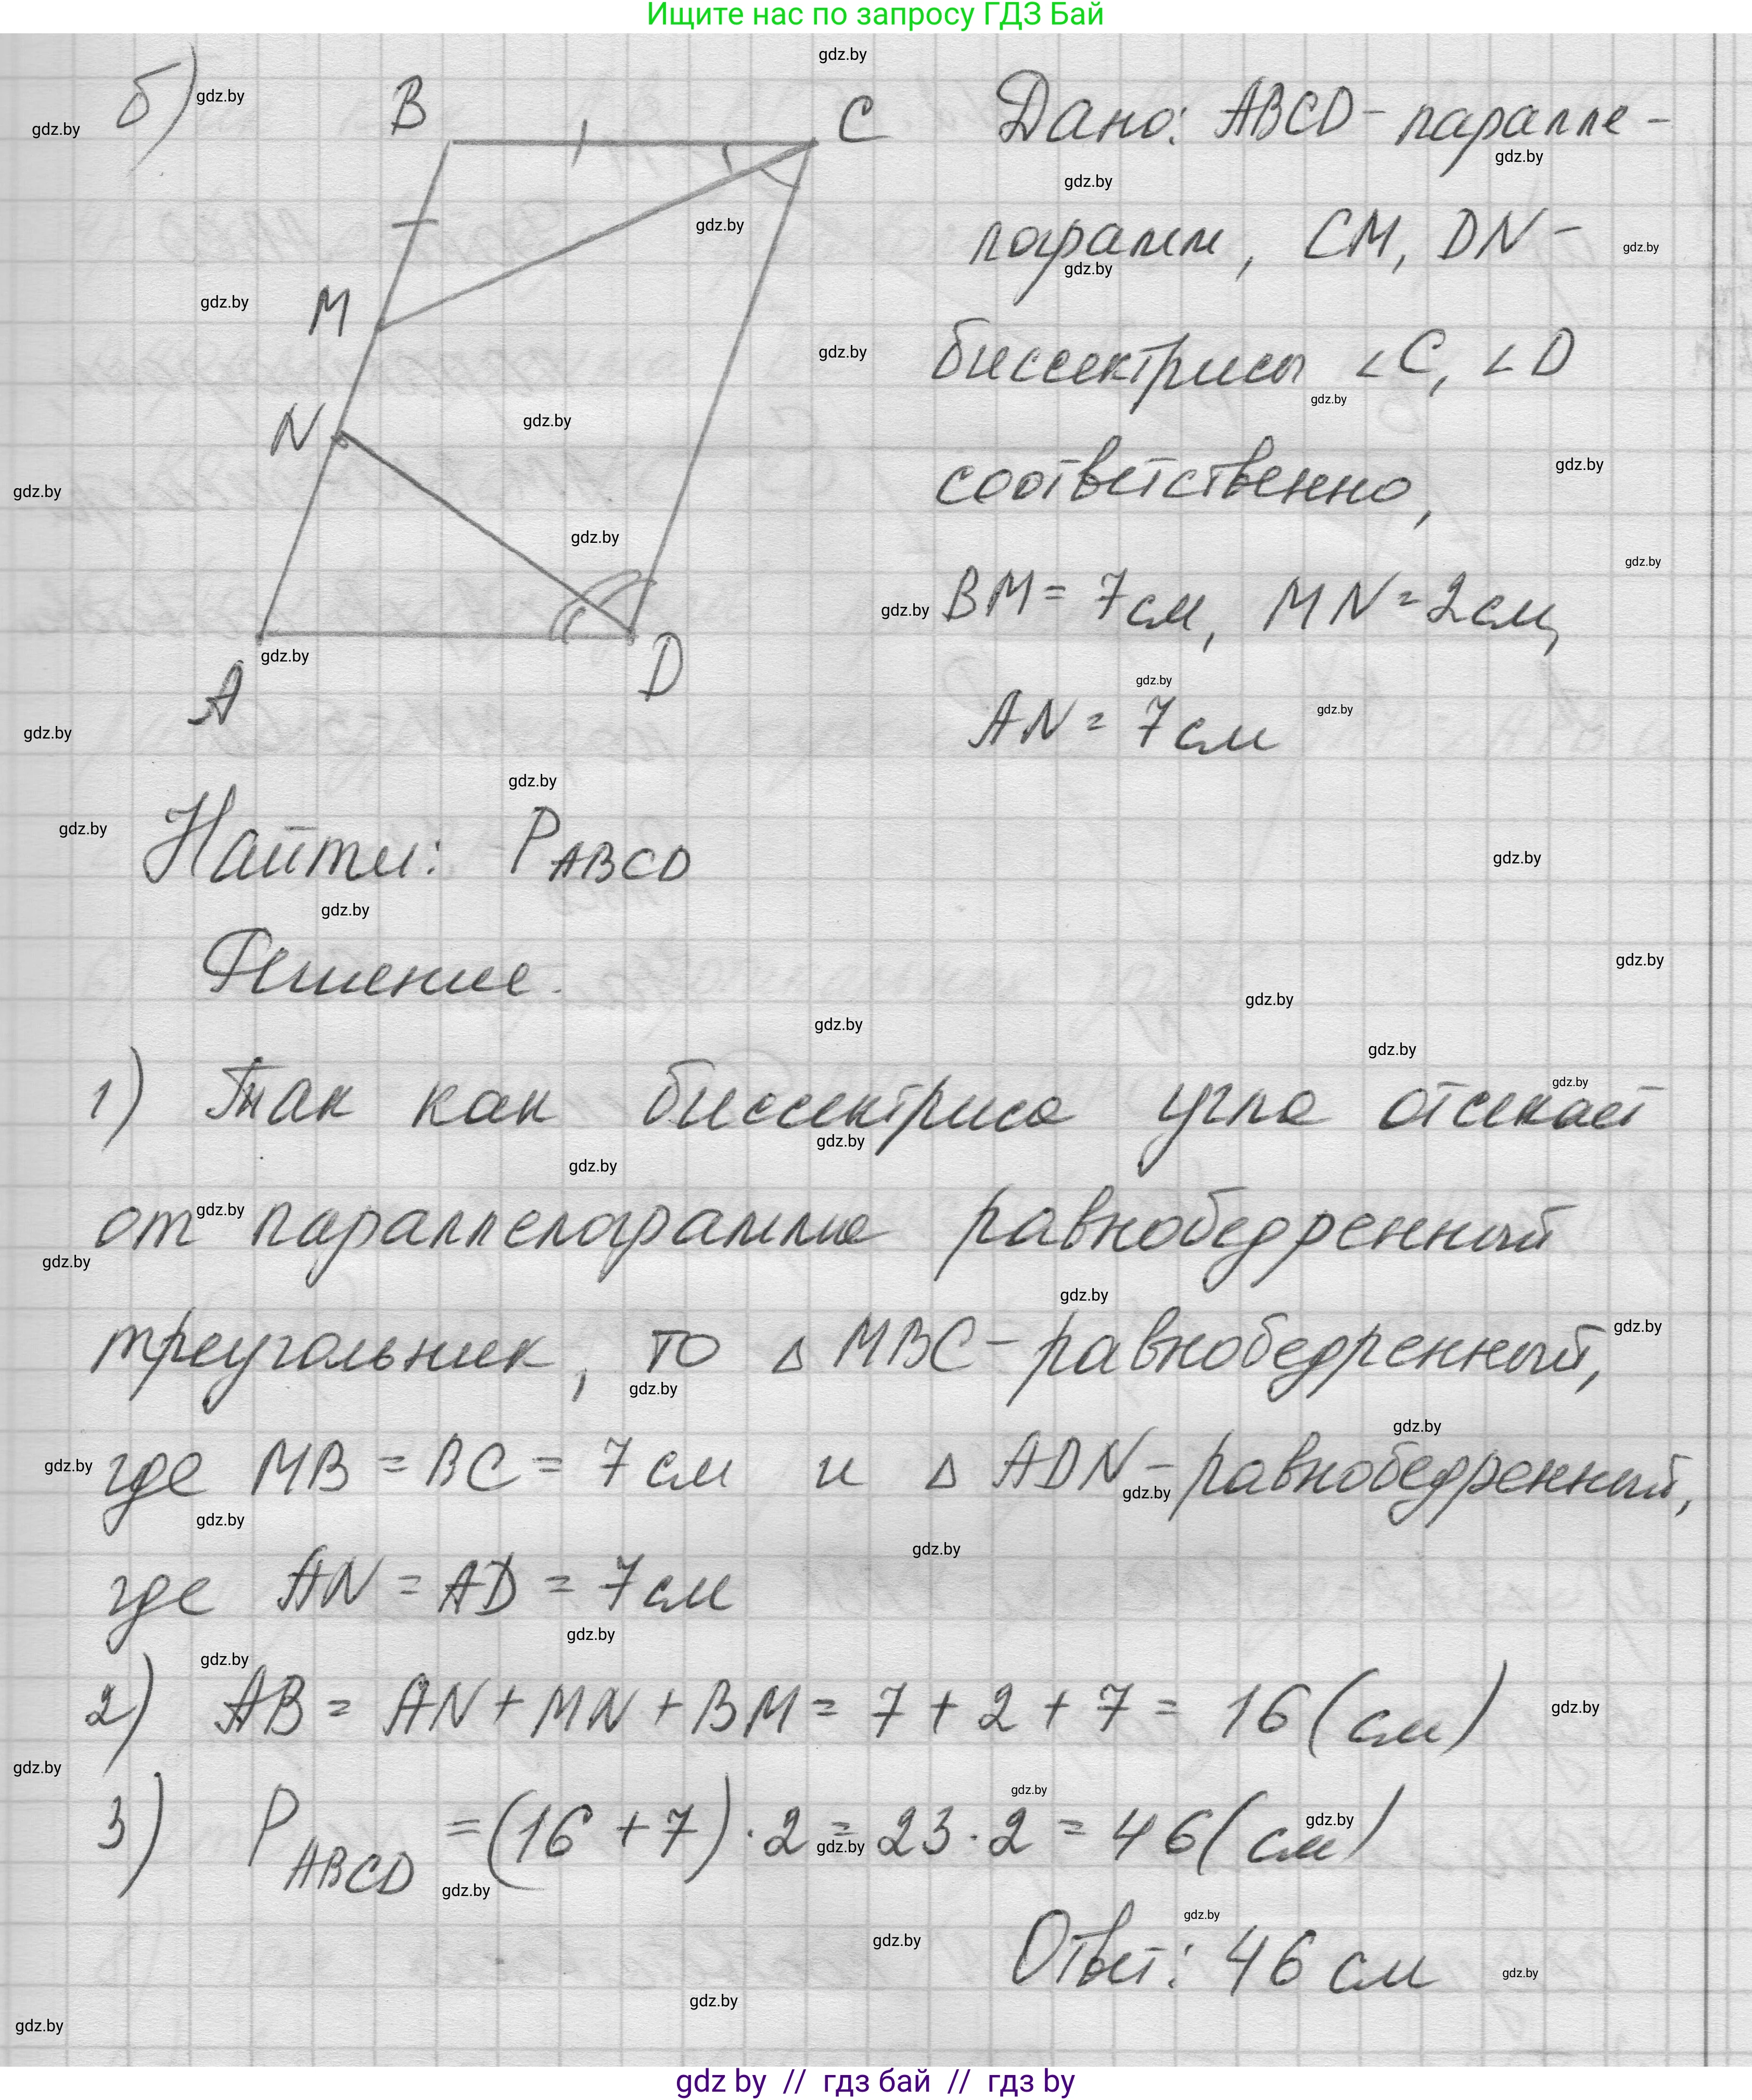 Ищите нас по запросу ГДЗ Бай
б)
B
C
M
N
A
D
Дано: ABCD - паралле -
лограмм, CM, DN -
биссектрисы ∠C, ∠D
соответственно,
BM = 7 см, MN = 2 см,
AN = 7 см
Найти: P ABCD
Решение.
1) Так как биссектриса угла отсекает
от параллелограмма равнобедренный
треугольник, то △ MBC - равнобедренный,
где MB = BC = 7 см и △ ADN - равнобедренный,
где AN = AD = 7 см
2) AB = AN + MN + BM = 7 + 2 + 7 = 16 (см)
3) P ABCD = (16 + 7) · 2 = 23 · 2 = 46 (см)
Ответ: 46 см
gdz by // гдз бай // гдз by